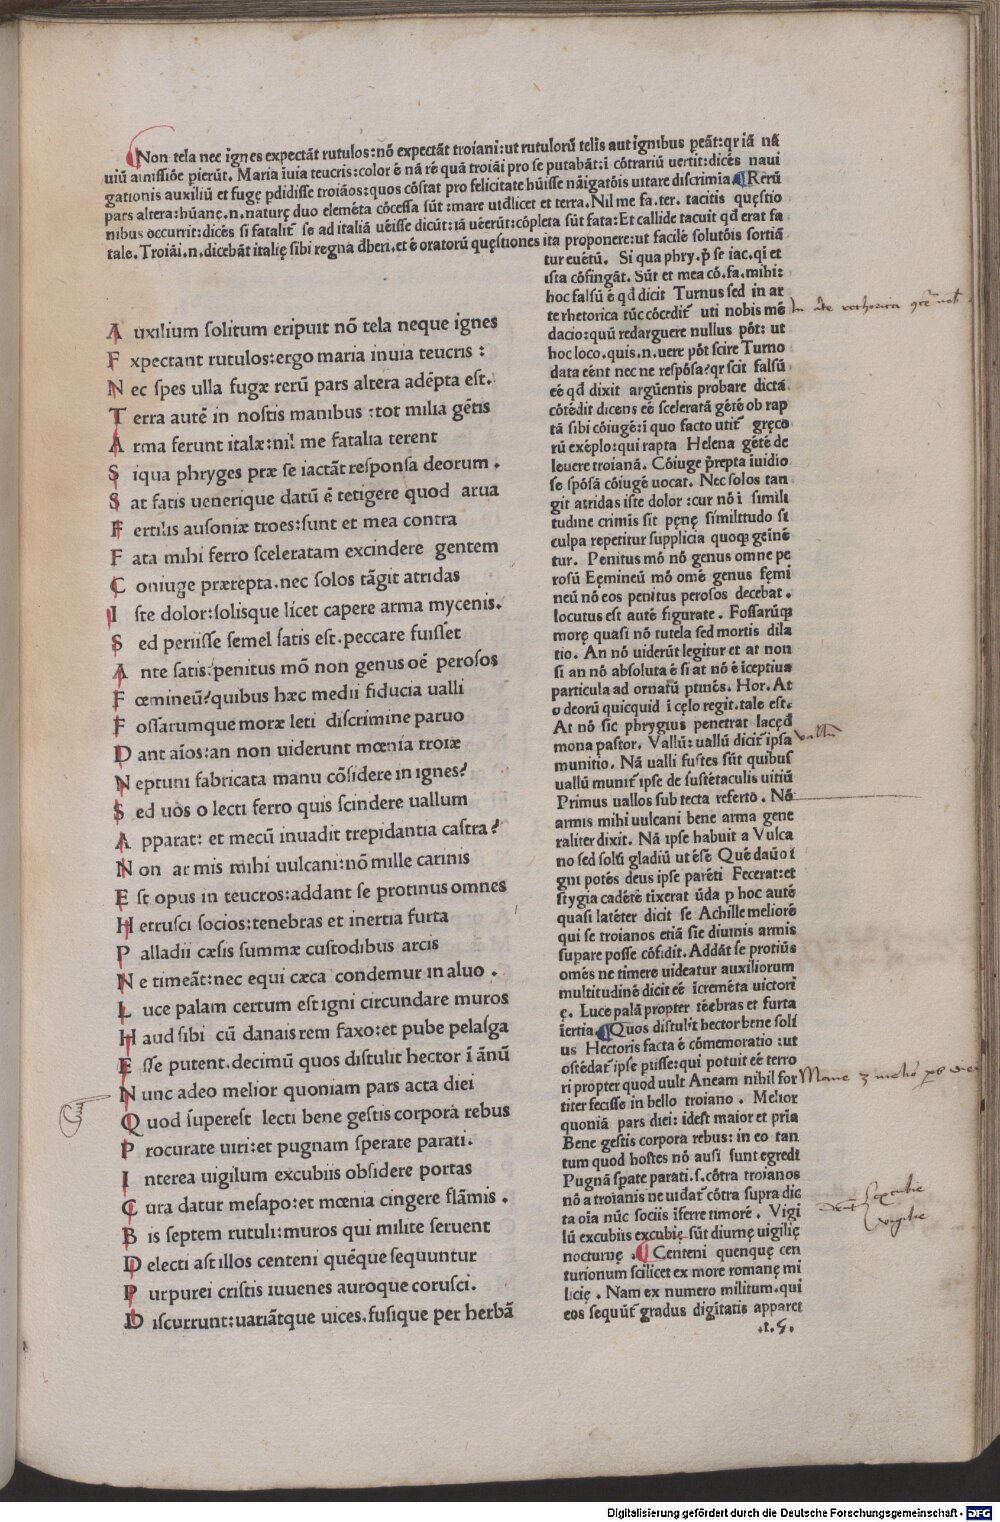 Non tela nec ignes expectāt rutulos:nō expectāt troiani:ut rutulorū telis aut ignibus peāt:qr iā nā
uiū amissiōe pierūt. Maria īuia teucris:color ē nā rē quā troiāi pro se putabāt:ī cōtrariū uertit:dicēs naui
gationis auxiliū et fugę pdidisse troiāos:quos cōstat pro felicitate hūisse nāigatōis uitare discrimia. Rerū
pars altera:hūanę.n.naturę duo elemēta cōcessa sūt :mare utdlicet et terra. Nil me fa.ter. tacitis quęstio
nibus occurrit:dicēs si fatalit̄ se ad italiā uēisse dicūt:iā uēerūt:cōpleta sūt fata:Et callide tacuit qđ erat fa
tale. Troiāi.n.dicebāt italię sibi regna đberi.et ē oratorū quęstiones ita proponere:ut facile solutōis sortiā
tur euētū. Si qua phry.p̄ se iac.qi et
ista cōfingāt. Sūt et mea cō.fa.mihi:
hoc falsū ē qđ dicit Turnus sed in ar
te rhetorica tūc cōcedit̄ uti nobis mē
dacio:quū redarguere nullus pōt: ut
hoc loco.quis.n.uere pōt scire Turno
data eēnt nec ne respōsa?qr scit falsū
eē qđ dixit argūentis probare dicta
cōtēdit dicens eē sceleratā gētē ob rap
tā sibi cōiugē:ī quo facto utit̄ gręco
rū exēplo:qui rapta Helena gētē de
leuere troianā. Cōiuge p̄repta īuidio
se spōsā cōiugē uocat. Nec solos tan
git atridas iste dolor :cur nō ī simili
tudine crimis sit pęnę similttudo si
culpa repetitur supplicia quoqꝫ geīnē
tur. Penitus mō nō genus omne pe
rosū Eęmineū mō omē genus fęmi
neū nō eos penitus perosos decebat.
locutus est autē figurate. Fossarūqꝫ
morę quasi nō tutela sed mortis dila
tio. An nō uiderūt legitur et at non
si an nō absoluta ē si at nō ē īceptiua
particula ad ornatū ptinēs. Hor. At
o deorū quicquid ī cęlo regit.tale est.
At nō sic phrygius penetrat lacęđ
mona pastor. Vallū: uallū dicit̄ ipsa
munitio. Nā ualli fustes sūt quibus
uallū munit̄ ipse de sustētaculis uitiū
Primus uallos sub tecta referto. Nō
armis mihi uulcani bene arma gene
raliter dixit. Nā ipse habuit a Vulca
no sed solū gladiū ut ēsē Quē dauō i
gni potēs deus ipse parēti Fecerat:et
stygia cadētē tixerat ūda p hoc autē
quasi latēter dicit se Achille meliorē
qui se troianos etiā sīe diuinis armis
supare posse cōfidit. Addāt se protiūs
omēs ne timere uideatur auxiliorum
multitudinē dicit eē īcremēta uictori
ę. Luce palā propter tēebras et furta
īertia. Quos distulit hector bene soli
us Hectoris facta ē cōmemoratio :ut
ostēdat̄ ipse ptisse:qui potuit eē terro
ri propter quod uult Aneam nihil for
titer fecisse in bello troiano. Melior
quoniā pars diei: idest maior et pria
Bene gestis corpora rebus: in eo tan
tum quod hostes nō ausi sunt egredi
Pugnā spate parati.s.cōtra troianos
nō a troianis ne uidat̄ cōtra supra dic
ta oīa nūc sociis īferre timorē. Vigi
lū excubiis excubię sūt diurnę uigilię
nocturnę. Centeni quenquę cen
turionum scilicet ex more romanę mi
licię. Nam ex numero militum.qui
eos sequūt̄ gradus digītatis apparet
.r.G.
A uxilium solitum eripuit nō tela neque ignes
F xpectant rutulos:ergo maria inuia teucris:
N ec spes ulla fugæ rerū pars altera adēpta est.
T erra autē in nostis manibus :tot milia gētis
A rma ferunt italæ:nil me fatalia terent
S iqua phryges præ se iactāt responsa deorum.
S at fatis uenerique datū ē tetigere quod arua
F ertilis ausoniæ troes:sunt et mea contra
F ata mihi ferro sceleratam excindere gentem
C oniuge prærepta.nec solos tāgit atridas
I ste dolor:solisque licet capere arma mycenis.
S ed periisse semel satis est.peccare fuisset
A nte satis:penitus mō non genus oē perosos
F œmineū?quibus hæc medii fiducia ualli
F ossarumque moræ leti discrimine paruo
D ant aīos:an non uiderunt mœnia troiæ
N eptuni fabricata manu cōsidere in ignes?
S ed uos o lecti ferro quis scindere uallum
A pparat: et mecū inuadit trepidantia castra?
N on armis mihi uulcani:nō mille carinis
E st opus in teucros:addant se protinus omnes
H etrusci socios:tenebras et inertia furta
P alladii cæsis summæ custodibus arcis
N e timeāt:nec equi cæca condemur in aluo.
L uce palam certum est igni circundare muros
H aud sibi cū danais rem faxo:et pube pelasga
E sse putent.decimū quos distulit hector ī ānū
N unc adeo melior quoniam pars acta diei
Q uod superest lecti bene gestis corpora rebus
P rocurate uiri:et pugnam sperate parati.
I nterea uigilum excubiis obsidere portas
C ura datur mesapo:et mœnia cingere flāmis.
B is septem rutuli:muros qui milite seruent
D electi ast illos centeni quēque sequuntur
P urpurei cristis iuuenes auroque corusci.
D iscurrunt:uariātque uices.fusique per herbā
vallū
excubie
vigilie
Digitalisierung gefördert durch die Deutsche Forschungsgemeinschaft - DFG